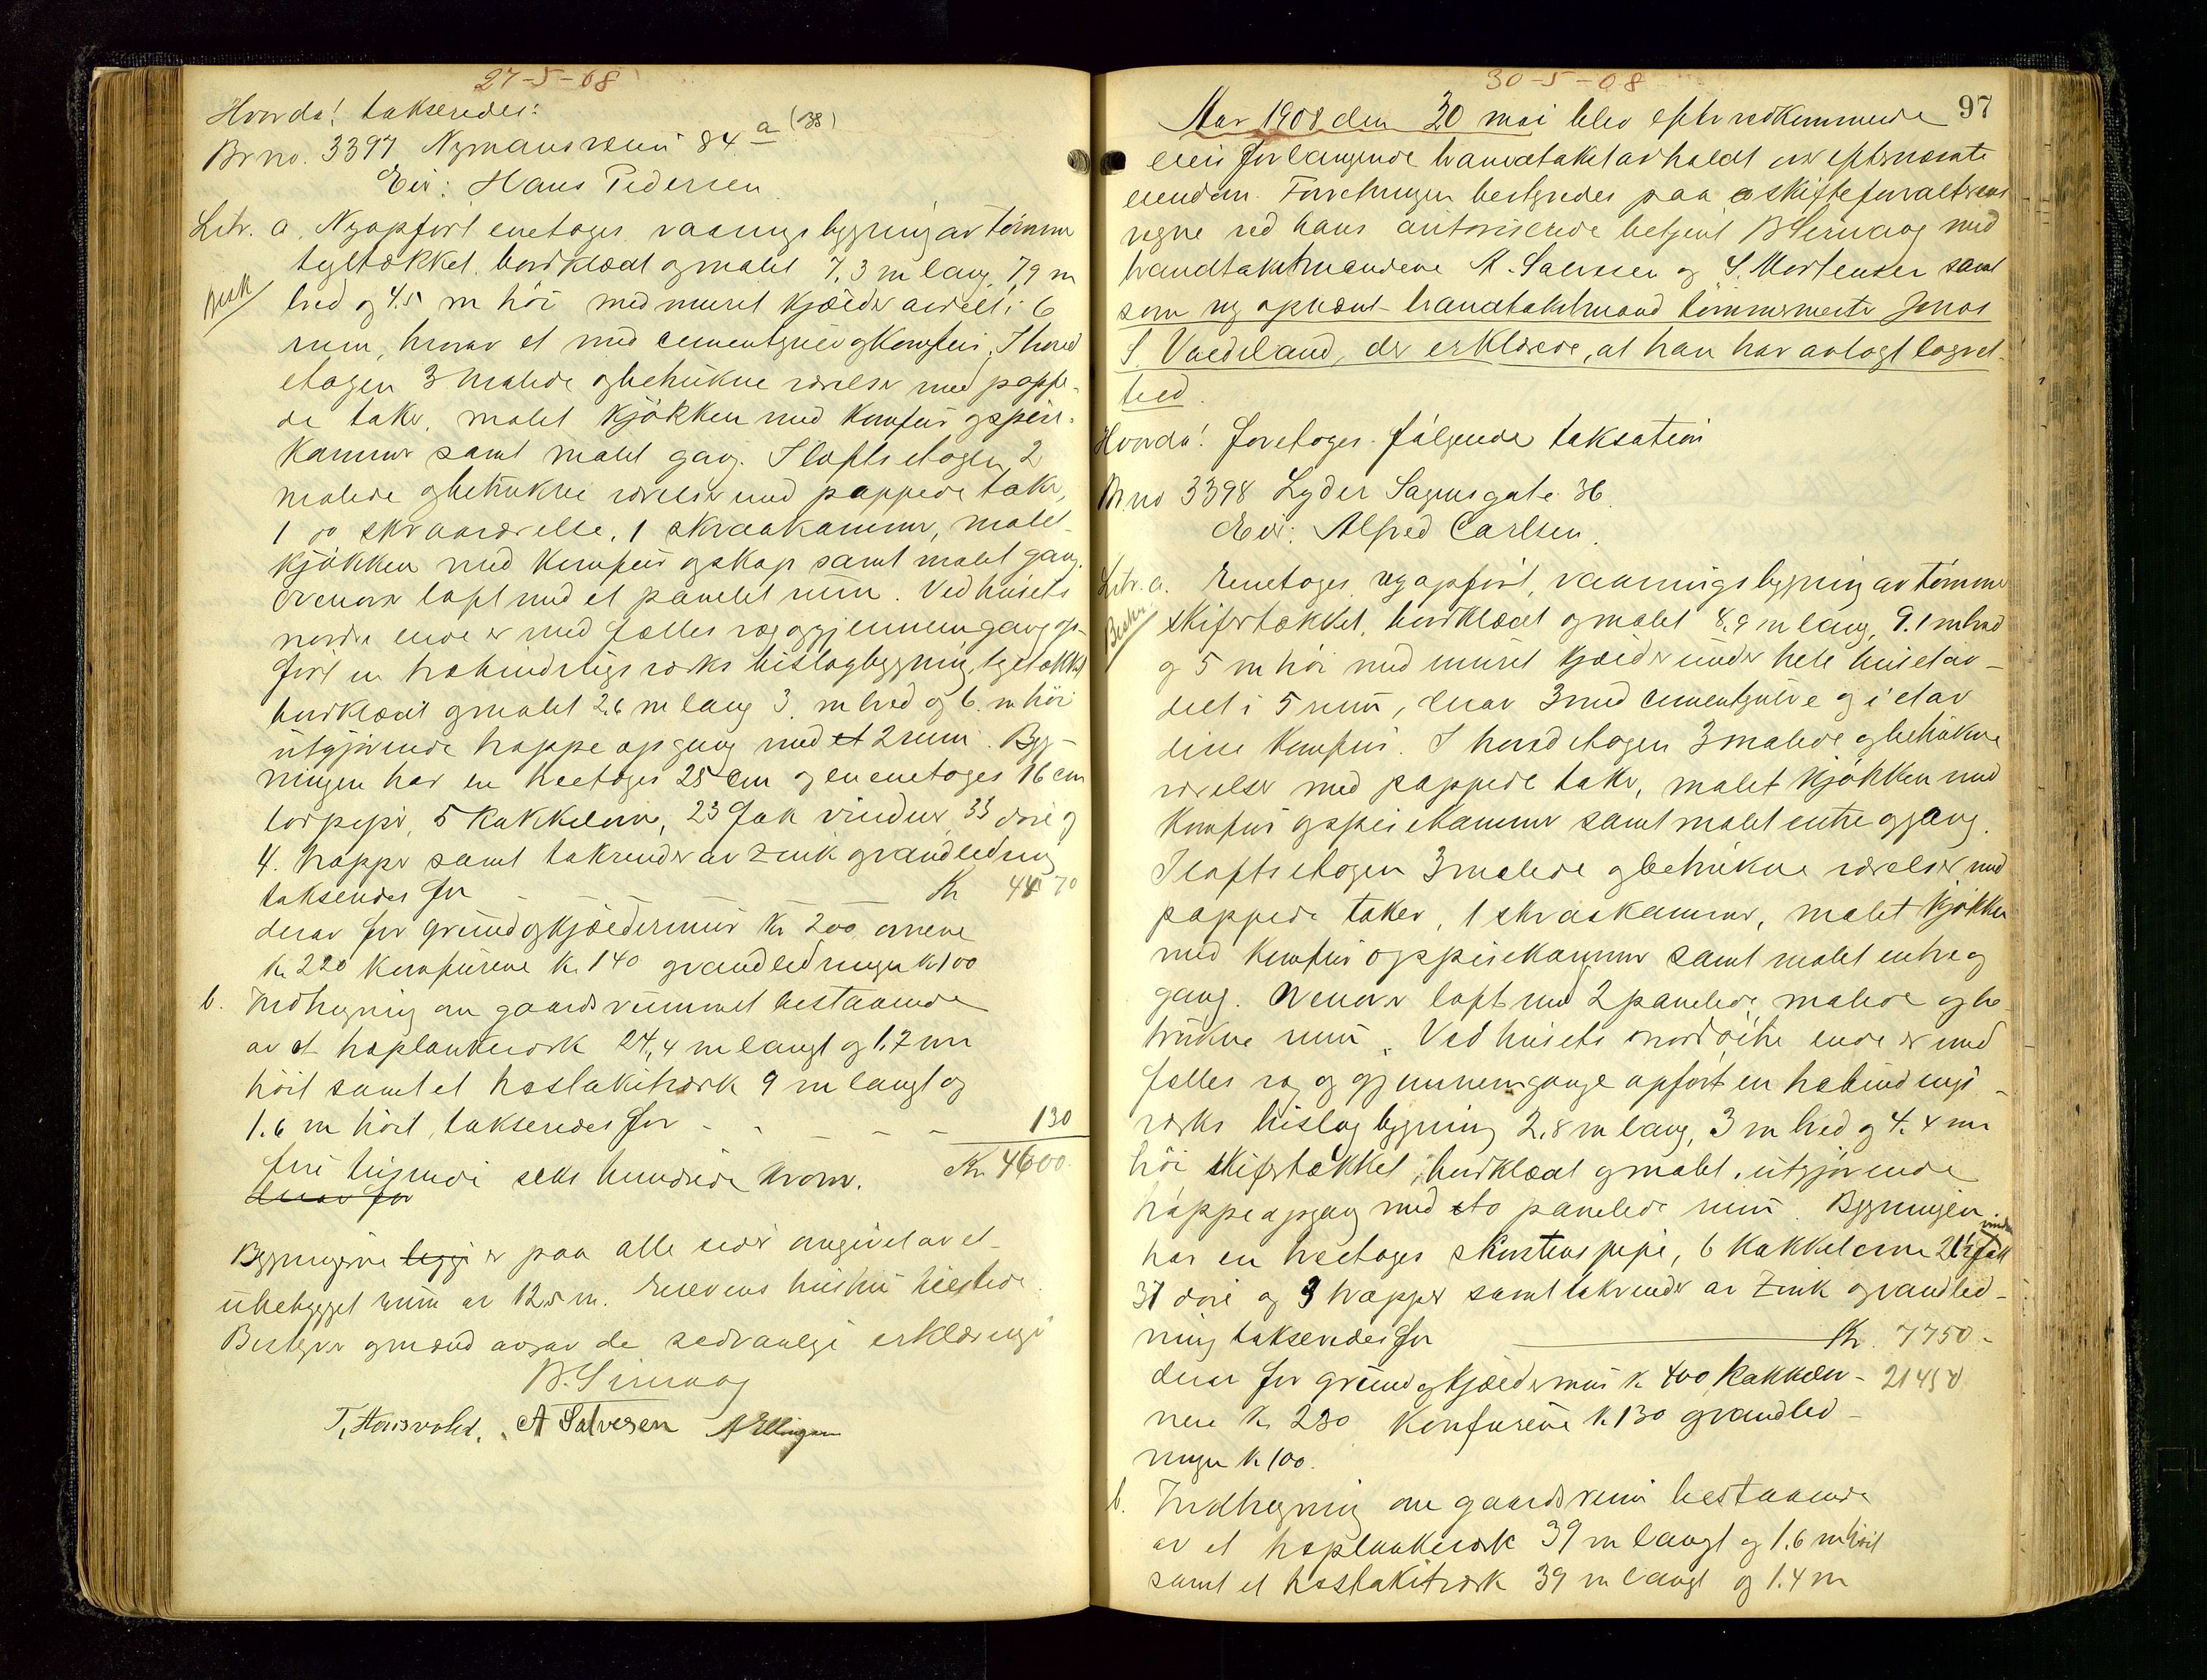 27-5-08
Hvorda! takseredes:
Br no. 3397 Nymansveien 84 a (138)
Eier: Hans Pedersen
Litr. a. Nyopført enetages vaaningsbygning av tømmer
tegltækket bordklædt og malet 7,3 m lang, 7,9 m
Besk
bred og 4.5 m høi med muret kjælder avdelt i 6
rum, hvorav et med cementgulv og komfur. I hoved
etagen 3 malede og betrukne værelser med pappe-
de taker, malet kjøkken med komfur og spise-
kammer samt malet gang. I loftsetagen 2
malede og betrukne værelser med pappede taker,
1 do skraaværelse, 1 skraakammer, malet
kjøkken med komfur og skap samt malet gang.
Ovenover loft med et panelet rum. Ved husets
nordre ende er med fælles væg og gjennemgang op-
ført en træbindingsverks bislagbygning, tegltækket
bordklædt og malet 2.6 m lang 3 m bred og 6 m høi
utgjørende trappeopgang med et 2 rum. Byg-
ningen har en treetages 25 cm og en enetages 16 cm
rørpipe, 5 kakkelovne, 23 fak vinduer, 33 døre og
4 trapper samt takrender av zink og vandledning
takseredes for - - - Kr 4470
derav for grund og kjældermur kr 200 ovnene
kr. 220 komfurene kr. 140 og vandledningen kr 100
b. Indhegning om gaardsrummet bestaaende
av et træplankeverk 24,4 m langt og 1,7 m
høit samt et træstakitverk 9 m langt og
1.6 m høit, takseredes for - - - - 130
fire tusinde seks hundrede kroner. Kr. 4600
derav for
Bygningerne ligge er paa alle sider omgivet av et
ubebygget rum av 12.5 m. Enevens hushus
Bestyrer og mænd avgav de sedvanlige erklæringer
B. Sirevaag
T. Hausvold. A Salvesen A Ellingsen
30-5-08
97
Aar 1908 den 30 mai blev efter vedkommende
eiers forlangende brandtakst avholdt over efternævnte
eiendom. Forretningen bestyredes paa skifteforvalterens
vegne ved hans autoriserede betjent B Sirevaag med
brandtakstmændene A. Salvesen og S. Mortensen samt
som ny opnævnt brandtakstmand tømmermester Jonas
S. Vaedeland, der erklærede, at han har avlagt lagret-
ted.
Hvorda! foretages følgende taksation
Br no 3398 Lyder Sagensgate 36
Eier: Alfred Carlsen.
Litr. a. Enetages nyopført, vaaningsbygning av tømmer
Beskr
skifertækket, bordklædt og malet 8.9 m lang, 9.1 m bred
og 5 m høi med muret kjælder under hele huset av-
delt i 5 rum, derav 3 med cementgulve og i et av
disse komfur. I hovedetagen 3 malede og betrukne
værelser med pappede taker, malet kjøkken med
komfur og spisekammer samt malet entre og gang.
I loftsetagen 3 malede og betrukne værelser med
pappede taker, 1 skraakammer, malet kjøkken
med komfur og spisekammer samt malet entre og
gang. Ovenover loft med 2 panelede, malede og be-
trukne rum. Ved husets nordøstre ende er med
fælles væg og gjennemgange opført en træbindings-
verks bislagbygning 2,8 m lang, 3 m bred og 4.4 m
høi skifertækket, bordklædt og malet, utgjørende
trappeopgang med to panelede rum. Bygningen
har en treetages skorstenspipe, 6 kakkelovne 21½ fak vinduer
31 døre og 3 trapper samt takrender av zink og vandled-
ning takseredes for Kr. 7750 -
derav for grund og kjældermur kr 400 kakkelov- 21450
nene kr 230 komfurene kr 130 og vandled-
ningen kr 100.
b. Indhegning om gaardsrum bestaaende
av et træplankeverk 39 m langt og 1.6 m høit
samt et træstakitverk 39 m langt og 1.4 m